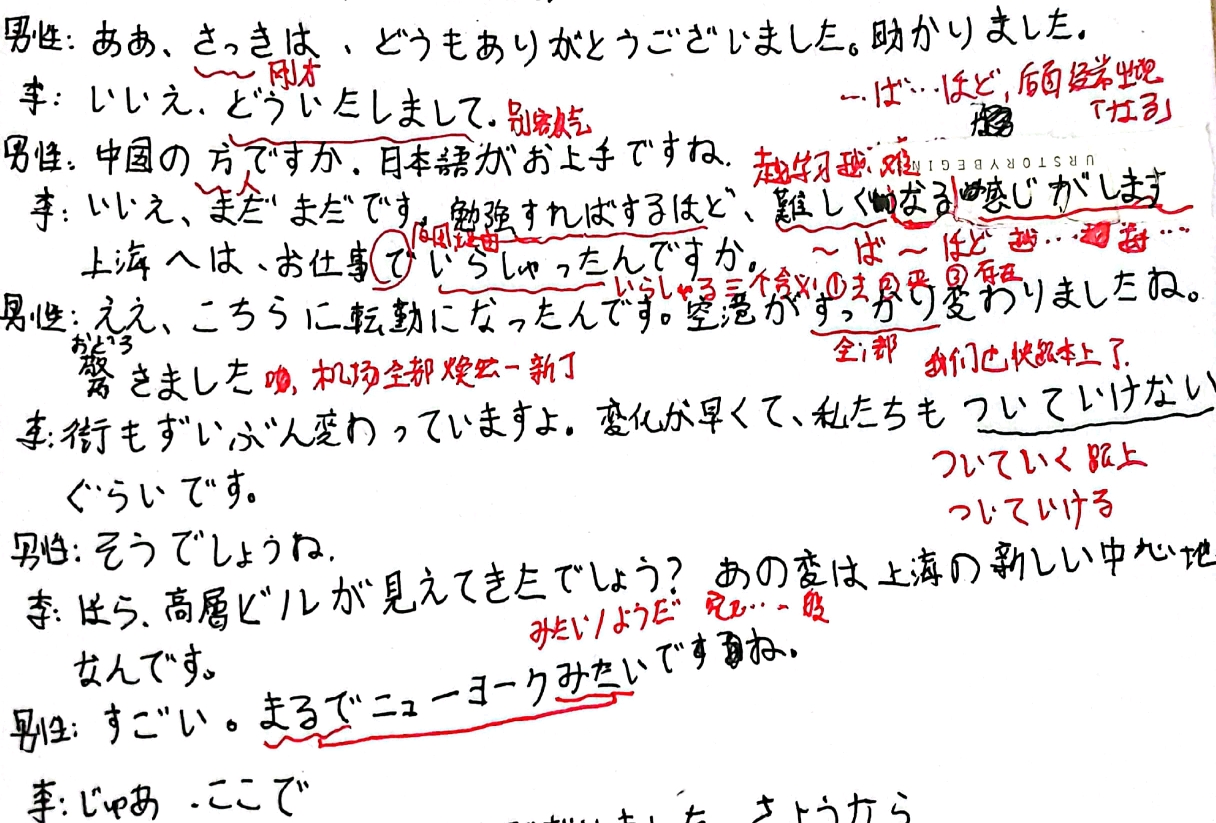 男性: ああ、さっきは、どうもありがとうございました。助かりました。
刚才
李: いいえ、どういたしまして。别客气
～ば…ほど,后面经常出现
「なる」
男性: 中国の方ですか。日本語がお上手ですね。
人
越学习越难
URSTORYBEGIN
李: いいえ、まだまだです。勉強すればするほど、難しくなる感じがします
～ば～ほど 越…越…
上海へは、お仕事でいらしゃったんですか。
いらしゃる三个含义①去②来③存在
男性: ええ、こちらに転勤になったんです。空港がすっかり変わりましたね。
全部
おどろ
驚きました 机场全部焕然一新了
我们也快跟不上了.
李: 街もずいぶん変わっていますよ。変化が早くて、私たちもついていけない
ついていく 跟上
ぐらいです。
ついていける
男性: そうでしょうね.
李: ほら、高層ビルが見えてきたでしょう? あの変は上海の新しい中心地
みたい/ようだ
なんです。
男性: すごい。まるでニューヨークみたいですね。
李: じゃあ、ここで